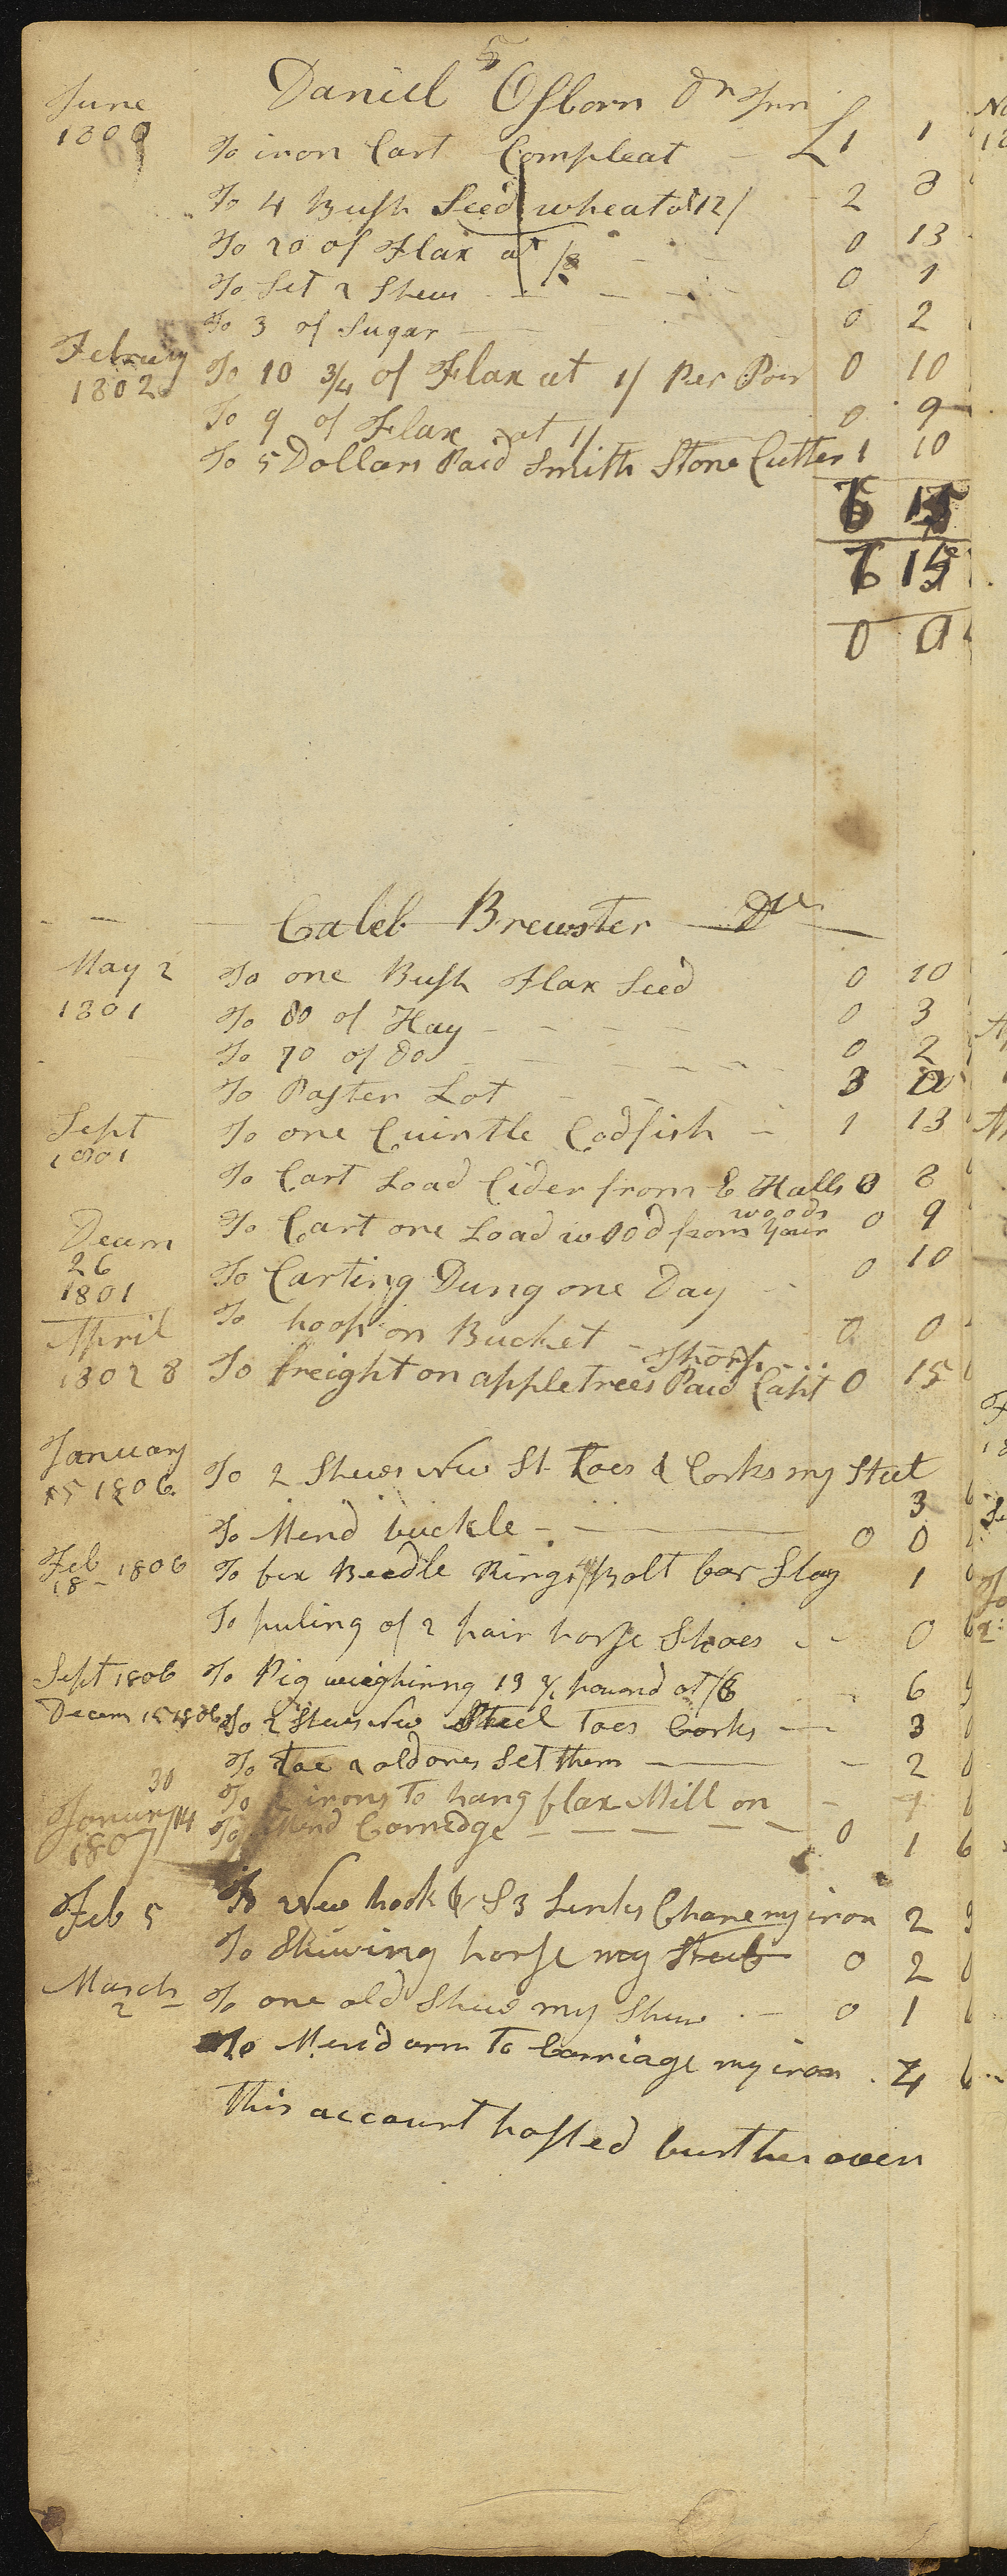 5
June Daniel Osborn Dr
1800 To iron Cart Compleat - £1 1
To 4 Bush Seed wheat at 12/ 2 8
To 20 of Flax at /8 - - 0 13
To Set 2 Shews - - - - 0 1
To 3 of Sugar - - 0 2
February
1802 To 10 3/4 of Flax at 1/ Per Pou 0 10
To 9 of Flax at 1/ 0 9
To 5 Dollars Paid Smith Stone Cutter 1 10
6 15
6 15
0 0
Caleb Brewster Dr
May 2 To one Bush Flax Seed 0 10
1801 To 80 of Hay - - - - 0 3
To 70 of Do - - - - 0 2
To Paster Lot - - 3 0
Sept To one Quintle Codfish - 1 13
1801
To Cart Load Cider from E Halls 0 8
woods
To Cart one Load wood from your 0 9
Decem
26
1801 To Carting Dung one Day - 0 10
April To hoop on Bucket - 0 0
Thorp
1802 8 To freight on appletrees Paid Capt 0 15
January
15 1806 To 2 Shews New St Toes & Corks my Steel
3
To Mend buckle - - 0 0
Feb 1806
18 - To fix Beedle Rings Bolt for Slay 1
To puling of 2 pair horse Shoes - - 0 6
Sept 1806 To Pig weighinng 13 1/2 pound at /8 - 6 9
Decem 15 1806 To 2 Shews New Steel Toes Corks - 3 0
To Toe 2 old ones Set them - - 2 0
30
To 2 irons To hang flax Mill on -
January 14
1807 To Mend Carredge - - - - 0 1 6
Feb 5 To New hook & S 3 Links Chane my iron 2 9
To Shewing horse my Steel 0 2 0
March
2 - To one old Shew my Shew - 0 1 6
To Mend arm To Carriage my iron 4 6
This account posted further over